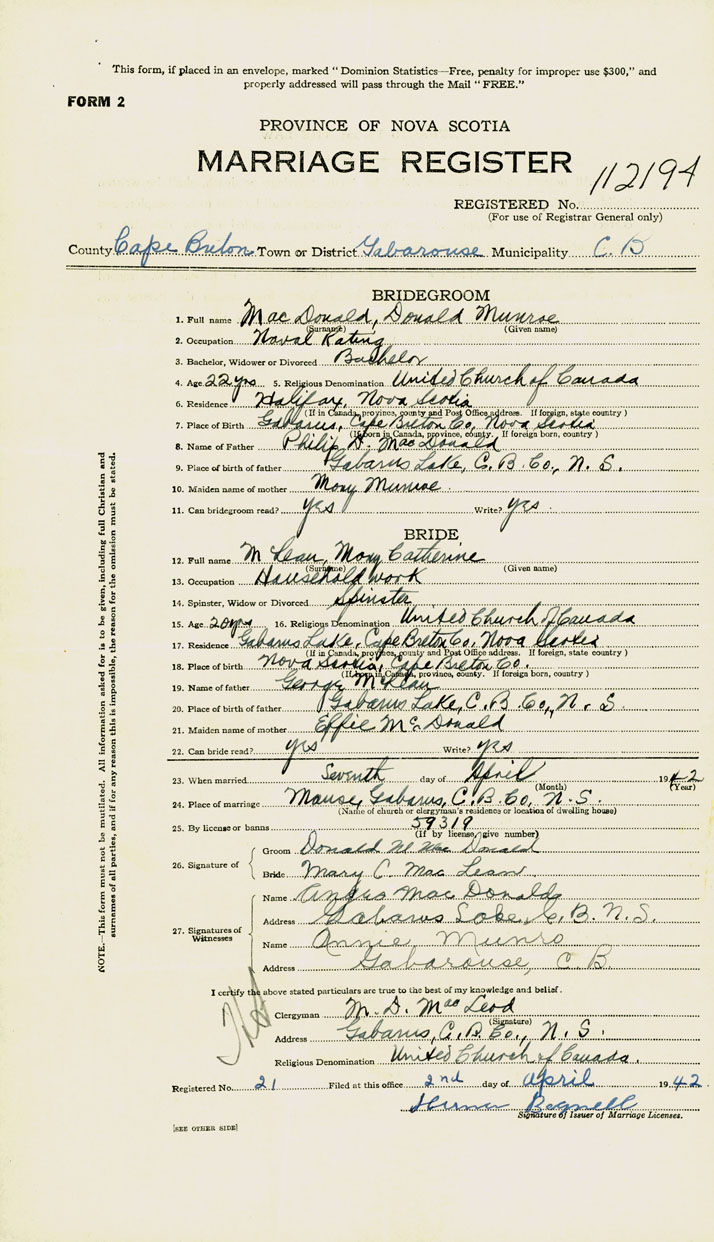 This form, if placed in an envelope, marked "Dominion Statistics—Free, penalty for improper use $300," and
properly addressed will pass through the Mail "FREE."
FORM 2
PROVINCE OF NOVA SCOTIA
MARRIAGE REGISTER
112194
REGISTERED No.
(For use of Registrar General only)
County Cape Breton Town or District Gabarouse Municipality C. B
BRIDEGROOM
1. Full name MacDonald, Donald Munroe
(Surname) (Given name)
2. Occupation Naval Rating
3. Bachelor, Widower or Divorced Bachelor
4. Age 22 yrs 5. Religious Denomination United Church of Canada
6. Residence Halifax, Nova Scotia
(If in Canada, province, county and Post Office address. If foreign, state country)
7. Place of Birth Gabarus, Cape Breton Co, Nova Scotia
(If born in Canada, province, county. If foreign born, country)
8. Name of Father Philip D. MacDonald
9. Place of birth of father Gabarus Lake, C. B. Co., N. S.
10. Maiden name of mother Mary Munroe
11. Can bridegroom read? yes Write? yes
BRIDE
12. Full name McLean, Mary Catherine
(Surname) (Given name)
13. Occupation Household work
14. Spinster, Widow or Divorced Spinster
15. Age 20 yrs 16. Religious Denomination United Church of Canada
17. Residence Gabarus Lake, Cape Breton Co, Nova Scotia
(If in Canada, province, county and Post Office address. If foreign, state country)
18. Place of birth Nova Scotia, Cape Breton Co.
(If born in Canada, province, county. If foreign born, country)
19. Name of father George McLean
20. Place of birth of father Gabarus Lake, C. B. Co., N. S
21. Maiden name of mother Effie McDonald
22. Can bride read? yes Write? yes
23. When married Seventh day of April 1942
(Month) (Year)
24. Place of marriage Manse, Gabarus, C. B. Co, N. S.
(Name of church or clergyman's residence or location of dwelling house)
25. By license or banns 59319
(If by license, give number)
26. Signature of Groom Donald M MacDonald
Bride Mary C MacLean
27. Signatures of Witnesses Name Angus MacDonald
Address Gabarus Lake, C. B. N. S.
Name Annie Munro
Address Gabarouse, C. B.
I certify the above stated particulars are true to the best of my knowledge and belief.
Clergyman M. D. MacLeod
(Signature)
Address Gabarus, C. B. Co., N. S.
Religious Denomination United Church of Canada.
Registered No. 21 Filed at this office 2nd day of April 1942
Bagnell
Signature of Issuer of Marriage Licenses.
[SEE OTHER SIDE]
NOTE.—This form must not be mutilated. All information asked for is to be given, including full Christian and
surnames of all parties, and if for any reason this is impossible, the reason for the omission must be stated.